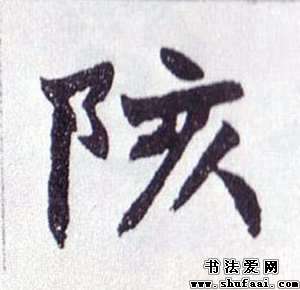 陔
书法爱网
www.shufaai.com